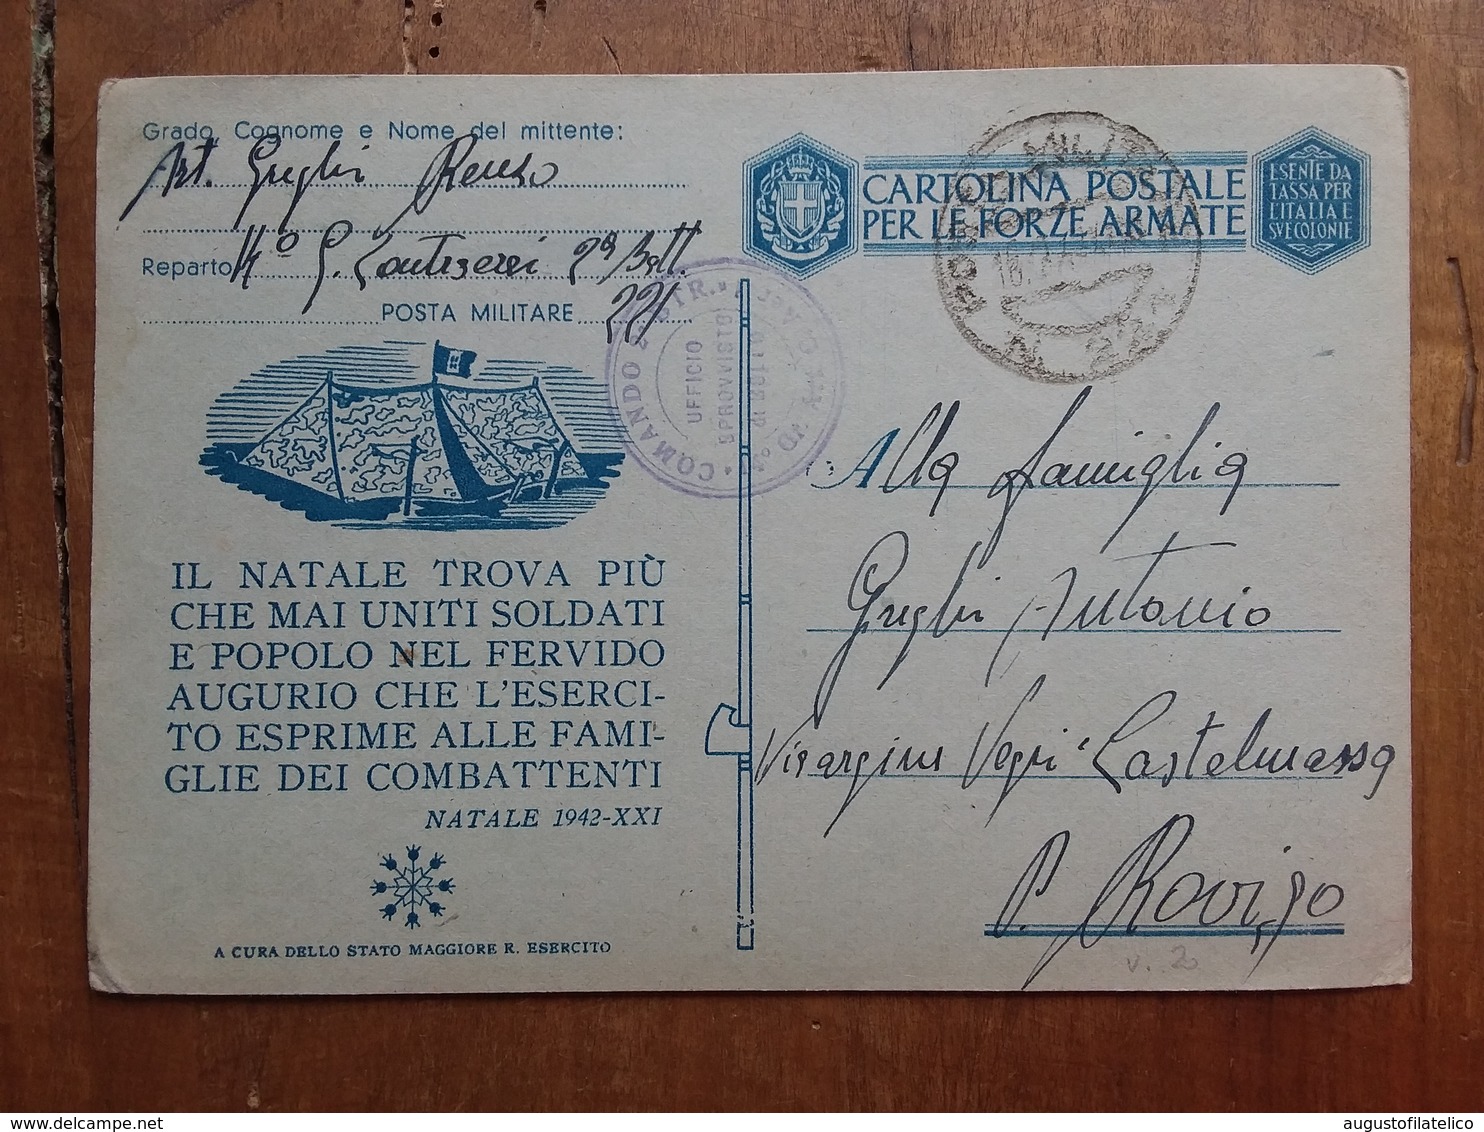 Grado, Cognome e Nome del mittente:
Art. Greghi Renzo
Reparto 4° G. Contraerei 2ª Batt.
POSTA MILITARE 221
IL NATALE TROVA PIÙ
CHE MAI UNITI SOLDATI
E POPOLO NEL FERVIDO
AUGURIO CHE L'ESERCI-
TO ESPRIME ALLE FAMI-
GLIE DEI COMBATTENTI
NATALE 1942-XXI
A CURA DELLO STATO MAGGIORE R. ESERCITO
COMANDO
UFFICIO
SPROVVISTO
CARTOLINA POSTALE
PER LE FORZE ARMATE
ESENTE DA
TASSA PER
L'ITALIA E
SUE COLONIE
Alla famiglia
Greghi Antonio
Castelmassa
P. Rovigo
v. 20
augustofilatelico